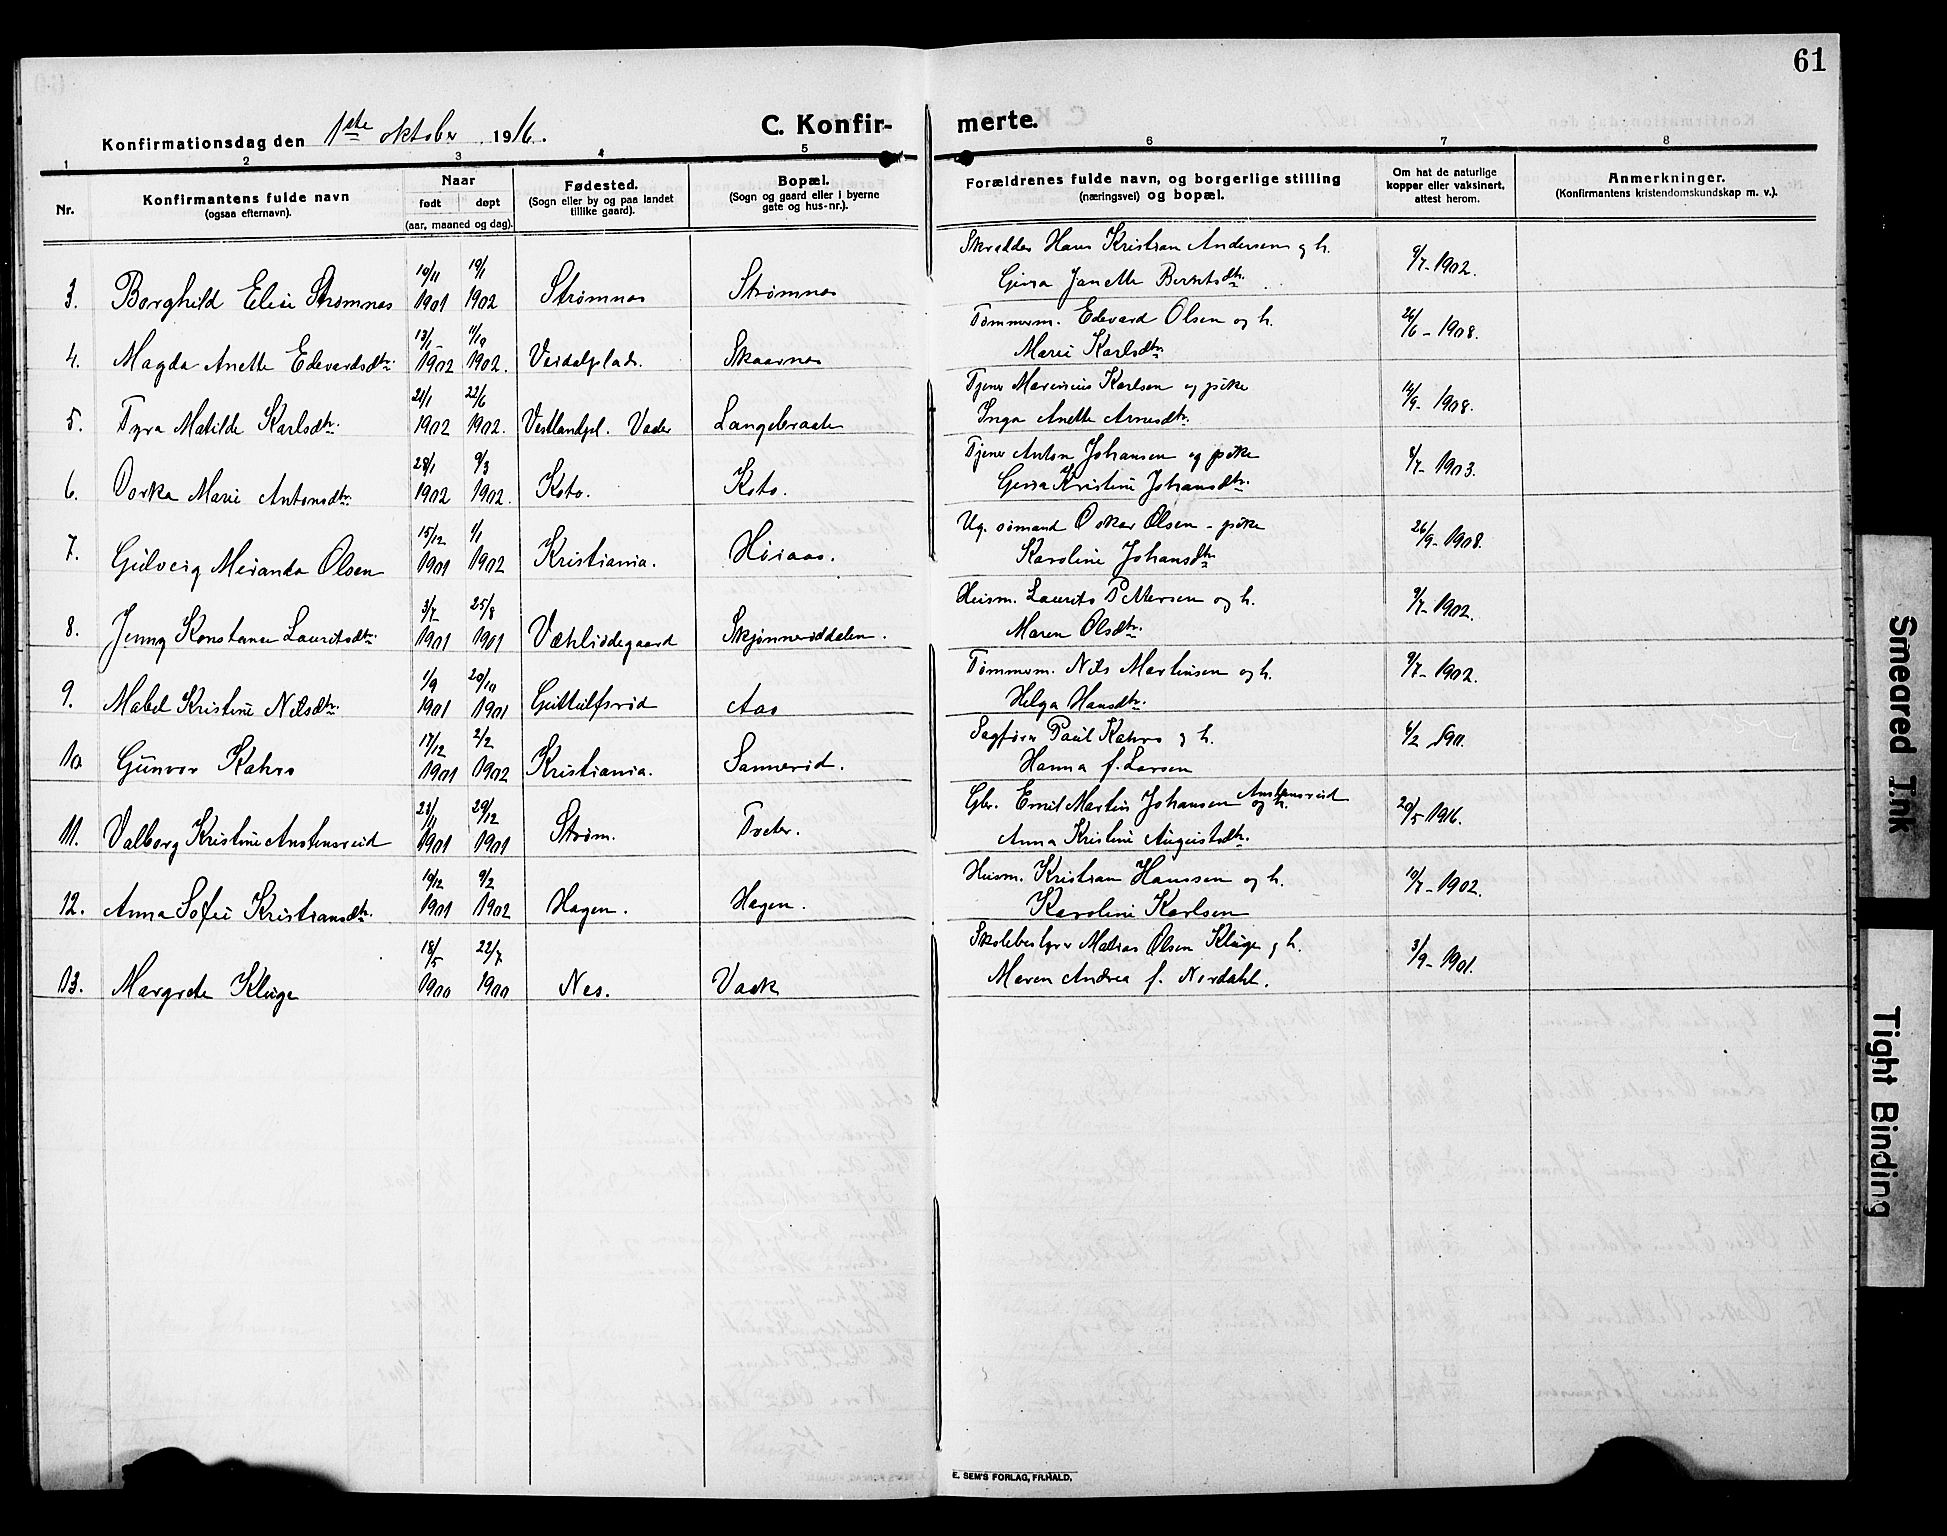 61
Konfirmationsdag den 1ste oktober 1916.
C. Konfirmerte.
1 2 3 4 5 6 7 8
Nr.
Konfirmantens fulde navn
(ogsaa efternavn).
Naar
født døpt
(aar, maaned og dag).
Fødested.
(Sogn eller by og paa landet
tillike gaard).
Bopæl.
(Sogn og gaard eller i byerne
gate og hus-nr.).
Forældrenes fulde navn, og borgerlige stilling
(næringsvei) og bopæl.
Om hat de naturlige
kopper eller vaksinert,
attest herom.
Anmerkninger.
(Konfirmantens kristendomskundskap m. v.).
Skrædder Hans Kristian Andersen og h.
3. Borghild Elise Strømnes 19/11 1901 19/1 1902 Strømnes Strømnes Gina Janette Berntsdtr. 9/7-1902.
Tømmerm. Edevard Olsen og h.
4. Magda Anette Edevardsdtr. 13/1 1902 11/9 1902. Skaarnes Marie Karlsdtr. 26/6-1908.
Tjener Karlsen og pike
5. Tyra Matilde Karlsdtr. 21/1 1902 22/6 1902. Vestlandpl. Langebraaten Inga Anette Arnesdtr. 14/9-1908.
Tjener Anton Johansen og pike
6. Dorka Marie Antonsdtr. 28/1 1902 9/3 1902. Koto. Koto. Gina Kristine Johansdtr. 8/7-1903.
Ug. sømand Oskar Olsen - pike
7. Miranda Olsen 15/12 1901 1/1 1902 Kristiania. Karoline Johansdtr. 26/9-1908.
Husm. Laurits Pettersen og h.
8. Jenny Konstance Lauritsdtr. 3/7 1901 25/8 1901 Skjønneröddalen. Maren Olsdtr. 9/7-1902.
Tømmerm. Nils Martinsen og h.
9. Mabel Kristine Nilsdtr. 1/9 1901 20/10 1901 Aas Helga Hansdtr. 9/7-1902.
Sagfører Paul Kahrs og h.
10 Gunvor Kahrs 17/12 1901 2/2 1902 Kristiania. Sannerød. Hanna f. Larsen
Gbr. Emil Martin Johansen Anstensrud og h.
11. Valborg Kristine Anstensrud 23/11 1901 29/12 1901 Strøm. Tveter. Anna Kristine Augustsdtr. 20/5 1916.
Husm. Kristian Hanssen og h.
12. Anna Sofie Kristiansdtr. 19/12 1901 9/2 1902 Hagen. Hagen. Karoline Karlsen 19/7-1902.
Skolebestyrer Matias Olsen Kluge og h.
13. Margrete Kluge 18/5 1900 22/7 1900 Nes. Vaak Maren Andrea f. Nordahl. 3/9-1901.
E. SEM'S FORLAG, FR.HALD.
Smeared Ink
Tight Binding